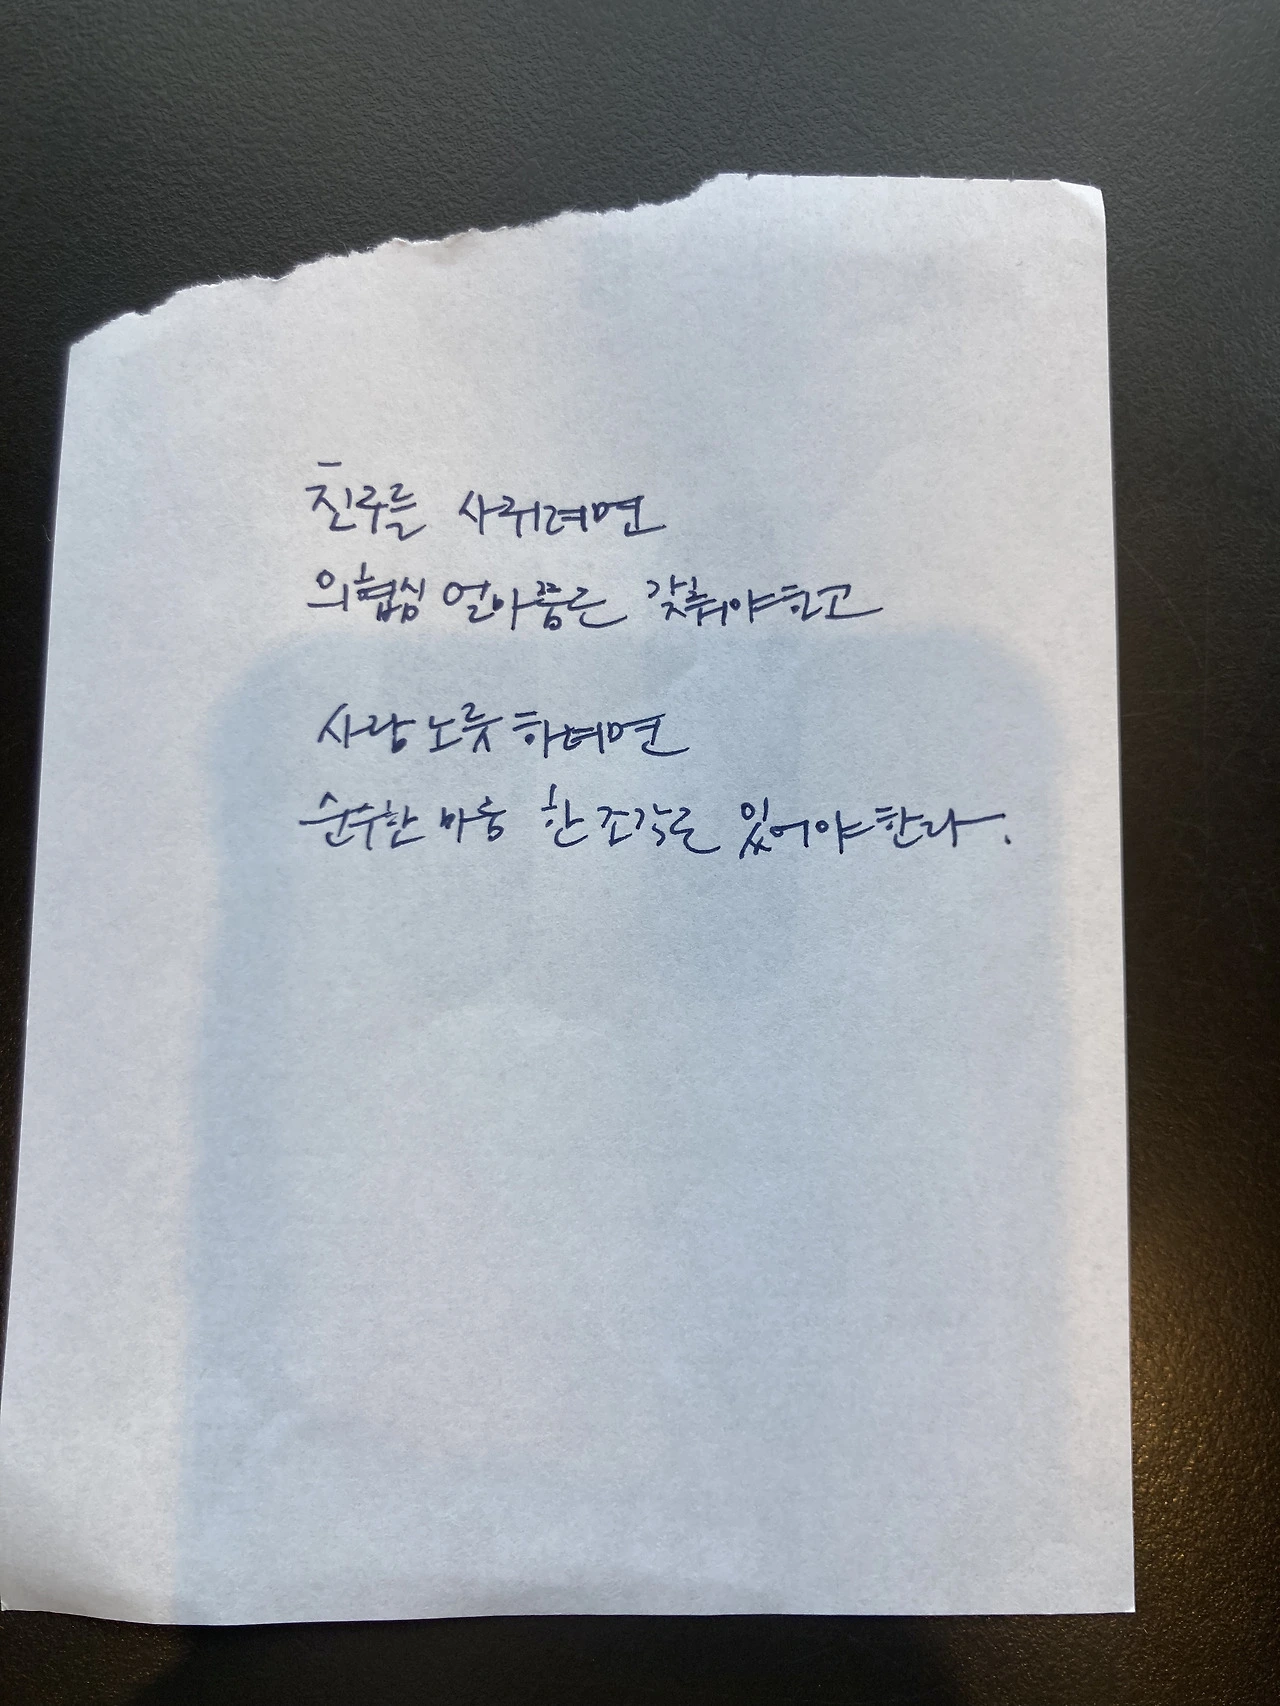 친구를 사귀려면
의협심 얼마쯤은 갖춰야하고
사람 노릇 하려면
순수한 마음 한 조각은 있어야한다.